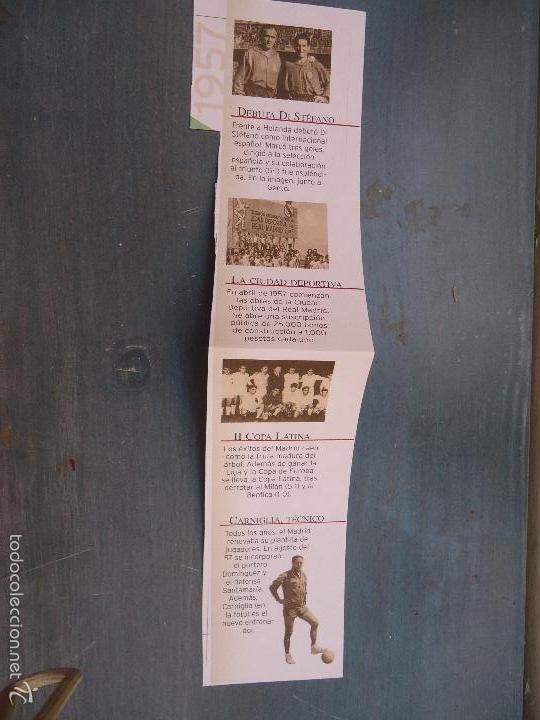 1957
DEBUTA DI STÉFANO
Frente a Holanda debutó Di
Stéfano como internacional
español. Marcó tres goles,
dirigió a la selección
española y su colaboración
al triunfo (5-1) fue espléndi-
da. En la imagen, junto a
Gento.
CIUDAD DEPORTIVA
REAL MADRID
LA CIUDAD DEPORTIVA
En abril de 1957 comienzan
las obras de la Ciudad
Deportiva del Real Madrid.
Se abre una suscripción
pública de 25.000 bonos
de construcción a 1.000
pesetas cada uno.
II COPA LATINA
Los éxitos del Madrid caen
como la fruta madura del
árbol. Además de ganar la
Liga y la Copa de Europa
se lleva la Copa Latina, tras
derrotar al Milán (5-1) y al
Benfica (1-0).
CARNIGLIA, TÉCNICO
Todos los años, el Madrid
renovaba su plantilla de
jugadores. En agosto del
57 se incorporan
el portero
Domínguez y
el defensa
Santamaría.
Además,
Carniglia (en
la foto) es el
nuevo entrena-
dor.
todocoleccion.net